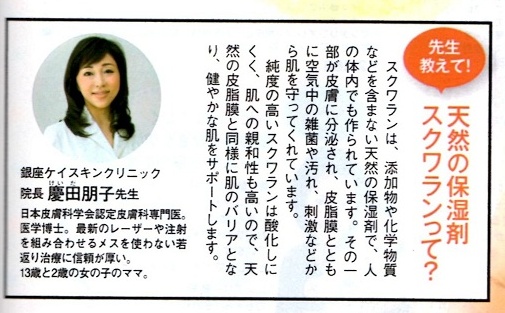 先生
教えて!
天然の保湿剤
スクワランって?
スクワランは、添加物や化学物質
などを含まない天然の保湿剤で、人
の体内でも作られています。その一
部が皮膚に分泌され、皮脂膜ととも
に空気中の雑菌や汚れ、刺激などか
ら肌を守ってくれています。
純度の高いスクワランは酸化しに
くく、肌への親和性も高いので、天
然の皮脂膜と同様に肌のバリアとな
り、健やかな肌をサポートします。
銀座ケイスキンクリニック
院長 慶田朋子先生
けいた ともこ
日本皮膚科学会認定皮膚科専門医。
医学博士。最新のレーザーや注射
を組み合わせるメスを使わない若
返り治療に信頼が厚い。
13歳と2歳の女の子のママ。